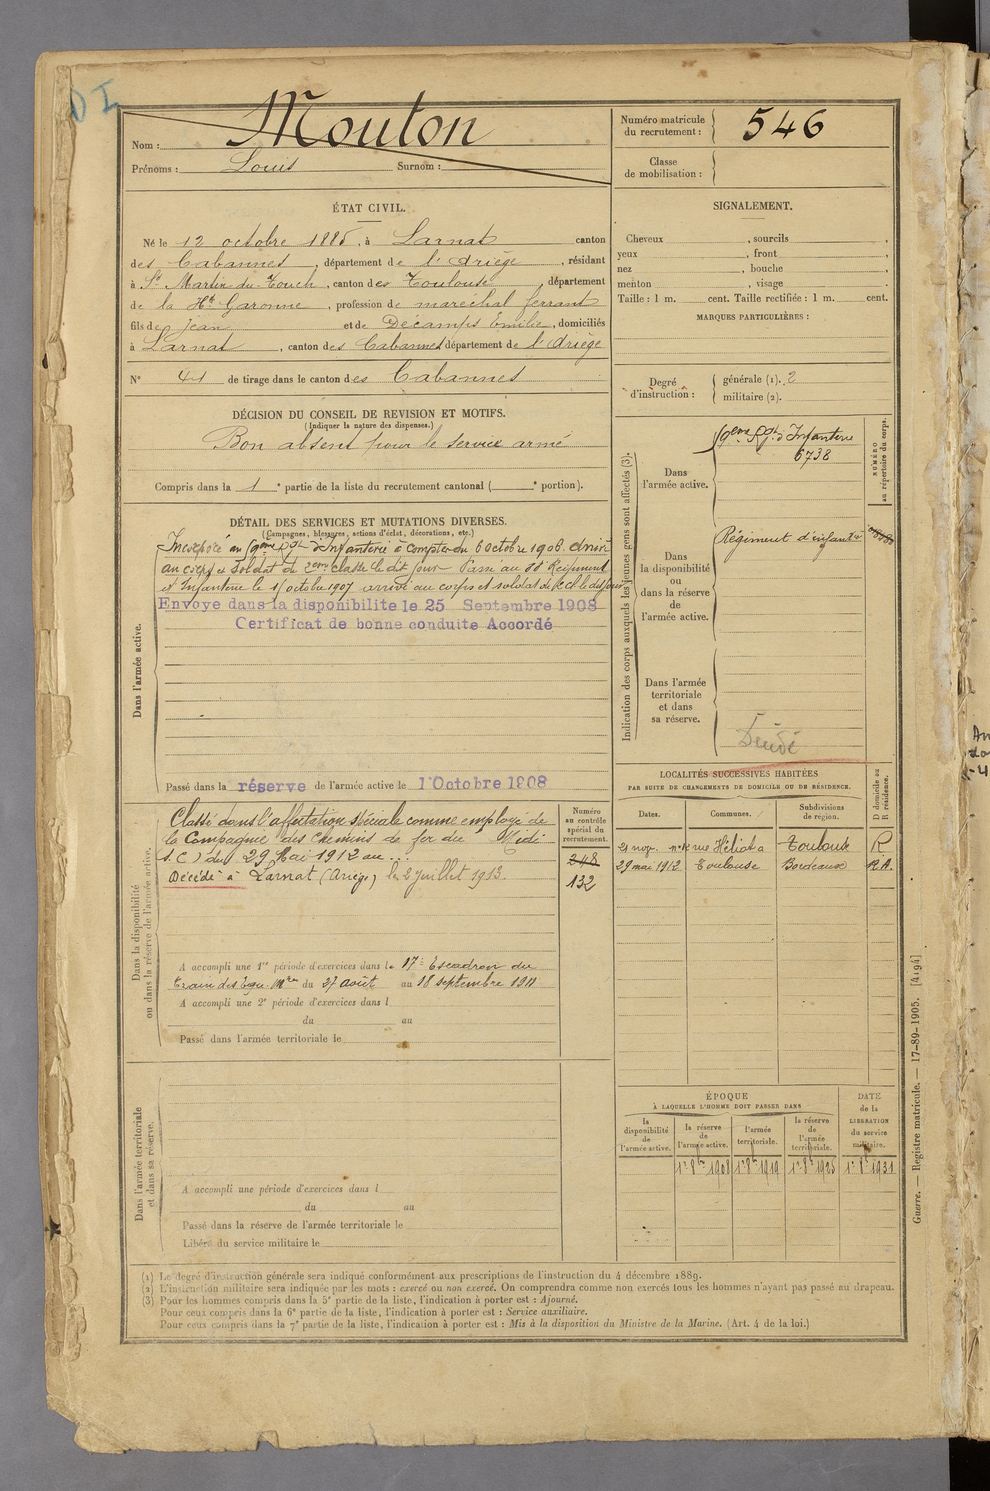 Nom : Mouton
Prénoms : Louis Surnom :
Numéro matricule
du recrutement : 546
Classe
de mobilisation :
ÉTAT CIVIL.
Né le 12 octobre 1885, à Larnat canton
des Cabannes, département de l'Ariège, résidant
à St Martin-du-Touch, canton des Toulouse, département
de la Hte Garonne, profession de maréchal ferrant
fils de Jean et de Décamps Emilie, domiciliés
à Larnat, canton des Cabannes département de l'Ariège
N° 41 de tirage dans le canton des Cabannes
DÉCISION DU CONSEIL DE REVISION ET MOTIFS.
(Indiquer la nature des dispenses.)
Bon absent pour le service armé
Compris dans la 1e partie de la liste du recrutement cantonal ( e portion).
SIGNALEMENT.
Cheveux , sourcils ,
yeux , front ,
nez , bouche ,
menton , visage
Taille : 1 m. cent. Taille rectifiée : 1 m. cent.
MARQUES PARTICULIÈRES :
Degré
d'instruction :
générale (1). 2
militaire (2).
DÉTAIL DES SERVICES ET MUTATIONS DIVERSES.
(Campagnes, blessures, actions d'éclat, décorations, etc.)
Dans l'armée active.
Incorporé au 9ème Rgt d'Infanterie à compter du 6 octobre 1906. Arrivé
au corps et soldat de 2eme classe le dit jour. Passé au Régiment
d'Infanterie le octobre 1907 arrivé au corps et soldat de 2e Cl. le dit jour
Envoye dans la disponibilite le 25 Septembre 1908
Certificat de bonne conduite Accordé
Passé dans la réserve de l'armée active le 1 Octobre 1908
Indication des corps auxquels les jeunes gens sont affectés (3).
NUMÉRO
au répertoire du corps.
Dans
l'armée active.
9eme Rgt d'Infanterie
6738
Dans
la disponibilité
ou
dans la réserve
de
l'armée active.
Régiment d'infanterie
Dans l'armée
territoriale
et dans
sa réserve.
Dans la disponibilité
ou dans la réserve de l'armée active.
Classé dans l'affectation spéciale comme employé de
la Compagnie des Chemins de fer du Midi
S.C.) du 29 Mai 1912 au ...
Décédé à Larnat (Ariège) le 2 Juillet 1913.
Numéro
au contrôle
spécial du
recrutement.
248
132
A accompli une 1re période d'exercices dans le 17e Escadron du
Train des Equ. Mres du 27 août au 18 septembre 1911
A accompli une 2e période d'exercices dans l
du au
Passé dans l'armée territoriale le
LOCALITÉS SUCCESSIVES HABITÉES
PAR SUITE DE CHANGEMENTS DE DOMICILE OU DE RÉSIDENCE.
Dates. Communes. Subdivisions
de région.
D domicile ou
R résidence.
rue Héliot Toulouse R
29 mai 1912 Toulouse Bordeaux R.A.
Dans l'armée territoriale
et dans sa réserve.
A accompli une période d'exercices dans l
du au
Passé dans la réserve de l'armée territoriale le
Libéré du service militaire le
ÉPOQUE
À LAQUELLE L'HOMME DOIT PASSER DANS
la
disponibilité
de
l'armée active.
la réserve
de
l'armée active.
l'armée
territoriale.
la réserve
de
l'armée
territoriale.
DATE
de la
LIBÉRATION
du service
militaire.
1er 8bre 1908 1er 8bre 1919 1er 8bre 1925 1er 8bre 1931
(1) Le degré d'instruction générale sera indiqué conformément aux prescriptions de l'instruction du 4 décembre 1889.
(2) L'instruction militaire sera indiquée par les mots : exercé ou non exercé. On comprendra comme non exercés tous les hommes n'ayant pas passé au drapeau.
(3) Pour les hommes compris dans la 5e partie de la liste, l'indication à porter est : Ajourné.
Pour ceux compris dans la 6e partie de la liste, l'indication à porter est : Service auxiliaire.
Pour ceux compris dans la 7e partie de la liste, l'indication à porter est : Mis à la disposition du Ministre de la Marine. (Art. 4 de la loi.)
Guerre. — Registre matricule. — 17-89-1905. [4194]